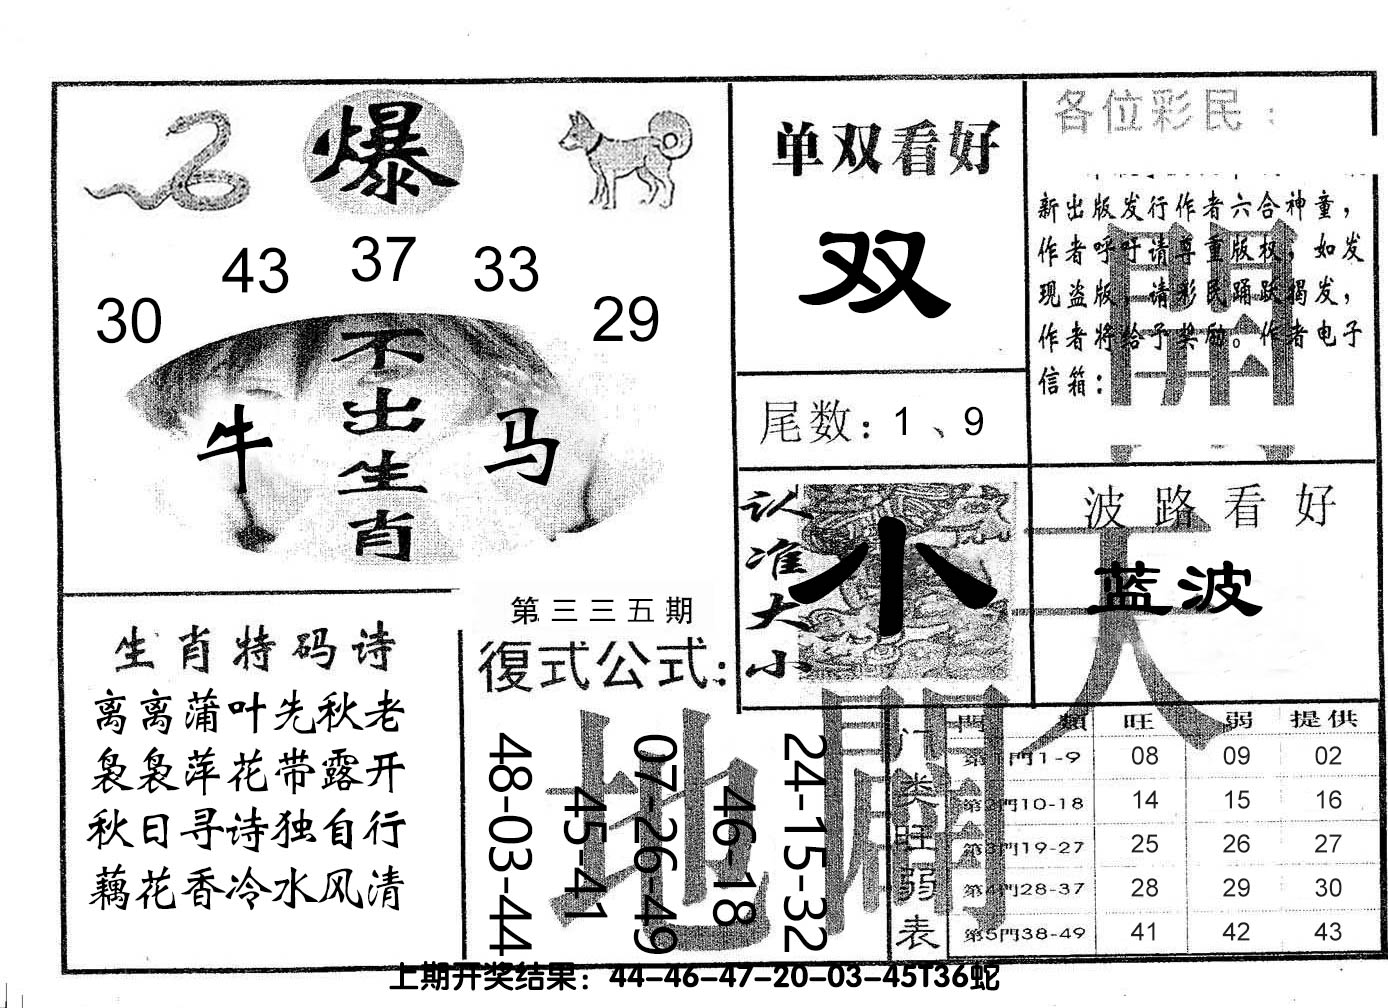 爆
30
43
37
33
29
不出生肖
牛
马
单双看好
双
尾数：1、9
各位彩民：
新出版发行作者六合神童，
作者呼吁请尊重版权，如发
现盗版，请彩民踊跃揭发，
作者将给予奖励。作者电子
信箱：
開
认准大小
小
波路看好
蓝波
天
生肖特码诗
离离蒲叶先秋老
袅袅萍花带露开
秋日寻诗独自行
藕花香冷水风清
第三三五期
復式公式：
48-03-44
45-41
07-26-49
46-18
24-15-32
地
門類 旺 弱 提供
门类旺弱表
第1門1-9 08 09 02
第2門10-18 14 15 16
第3門19-27 25 26 27
第4門28-37 28 29 30
第5門38-49 41 42 43
上期开奖结果：44-46-47-20-03-45T36蛇